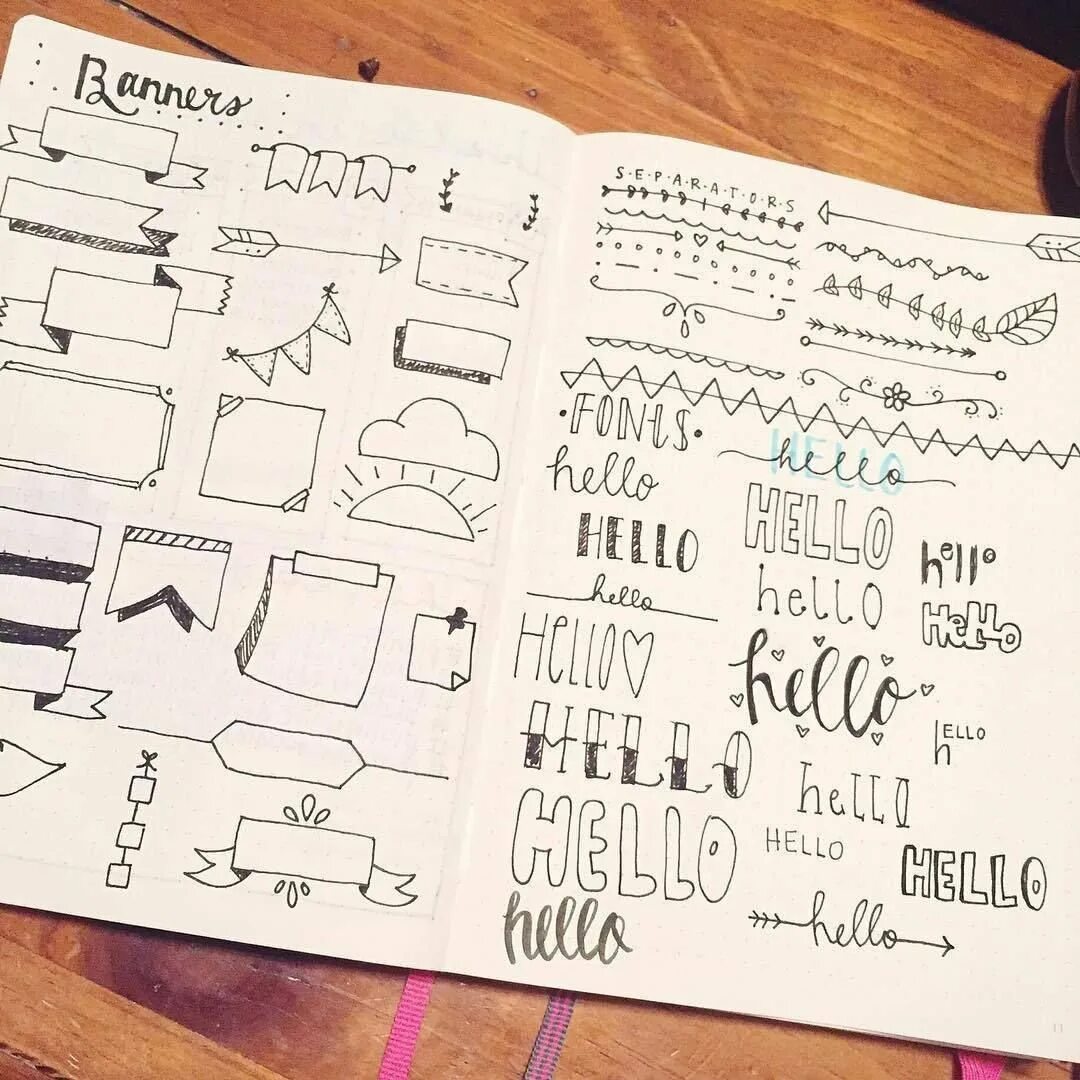 Banners
S·E·P·A·R·A·T·O·R·S
·FONtS·
hello
HELLO
hello
HELLO
hello
HELLO♡
HELLO
HELLO
hello
HELLO
hello
HELLO
hello
hello
heLLO
HELLO
hello
hello
HeLLO
hELLO
HELLO
11